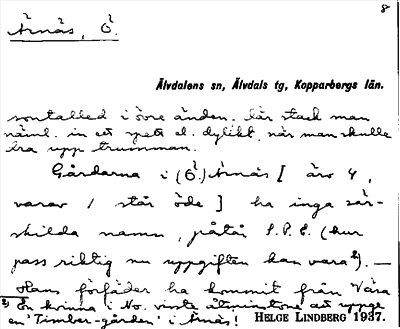 8
Årnäs, Ö.
Älvdalens sn, Älvdals tg, Kopparbergs län.
sontalled i övre änden. Där stack man
näml. in ett spett el. dylikt, när man skulle
dra upp trumman.
Gårdarna i (Ö.) Årnäs [ äro 4,
varav 1 står öde ] ha inga sär-
skilda namn, påstår S.P.E. (hur
pass riktig nu uppgiften kan vara²). —
Hans förfäder ha kommit från Våra
²) En kvinna i No. visste åtminstone att uppge
en "Timber-gården" i Årnäs! HELGE LINDBERG 1937.